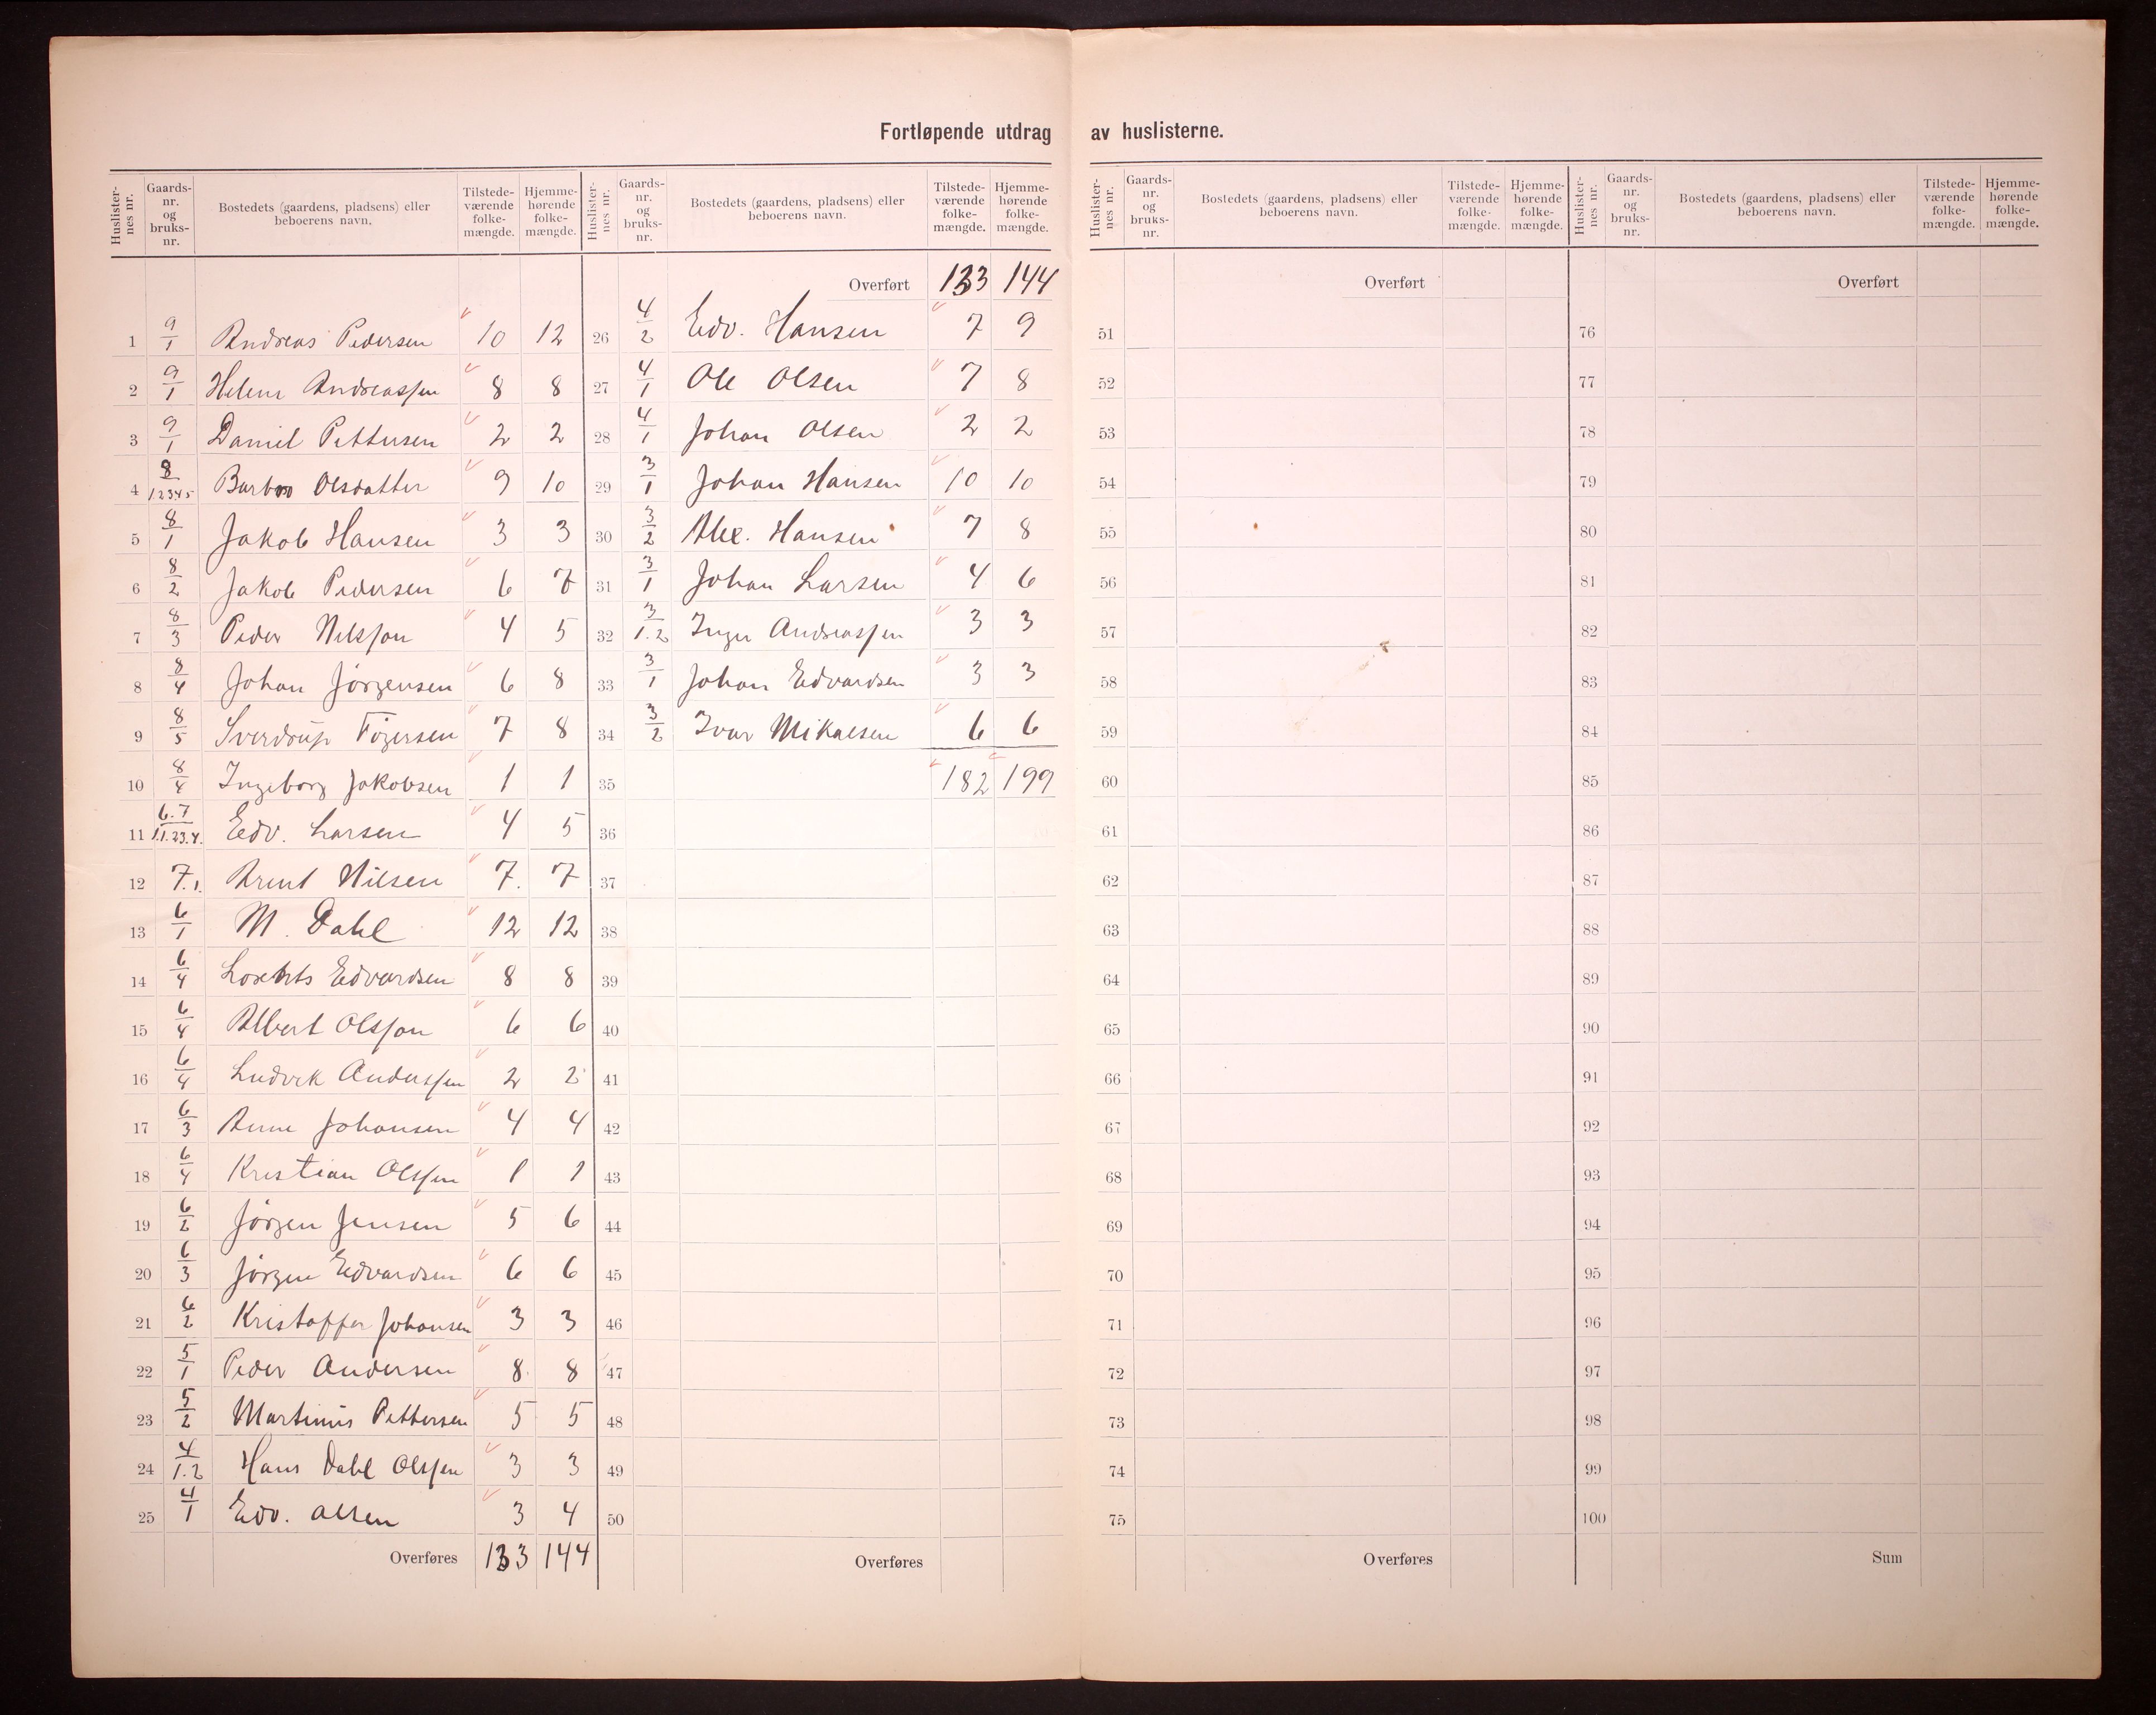 Fortløpende utdrag av huslisterne.
Huslister-nes nr. Gaards-nr. og bruks-nr. Bostedets (gaardens, pladsens) eller beboerens navn. Tilstede-værende folke-mængde. Hjemme-hørende folke-mængde.
1 9/1 Andreas Pedersen 10 12
2 9/1 Helene Andreassen 8 8
3 9/1 Daniel Pettersen 2 2
4 8/12345 Barbro Olsdatter 9 10
5 8/1 Jakob Hansen 3 3
6 8/2 Jakob Pedersen 6 7
7 8/3 Peder Nilsson 4 5
8 8/4 Johan Jørgensen 6 8
9 8/5 Sverdrup Tøgersen 7 8
10 8/4 Ingeborg Jakobsen 1 1
11 6.7/1.1.23.4. Edv. Larsen 4 5
12 7.1. Arent Nilsen 7. 7
13 6/1 M. Dahl 12 12
14 6/4 Edvardsen 8 8
15 6/4 Albert Olsson 6 6
16 6/4 Ludvik Anderssen 2 2
17 6/3 Anne Johansen 4 4
18 6/4 Kristian Olssen 1 1
19 6/2 Jørgen Jensen 5 6
20 6/3 Jørgen Edvardsen 6 6
21 6/2 Kristoffer Johansen 3 3
22 5/1 Peder Andersen 8 8
23 5/2 Martinus Pettersen 5 5
24 4/1.2 Hans Dahl Olssen 3 3
25 4/1 Edv. Olsen 3 4
Overføres 133 144
Huslister-nes nr. Gaards-nr. og bruks-nr. Bostedets (gaardens, pladsens) eller beboerens navn. Tilstede-værende folke-mængde. Hjemme-hørende folke-mængde.
Overført 133 144
26 4/2 Edv. Hansen 7 9
27 4/1 Ole Olsen 7 8
28 4/1 Johan Olsen 2 2
29 3/1 Johan Hansen 10 10
30 3/2 Alex. Hansen 7 8
31 3/1 Johan Larsen 4 6
32 3/1.2 Inger Andreassen 3 3
33 3/1 Johan Edvardsen 3 3
34 3/2 Ivar Mikalsen 6 6
35 182 199
36
37
38
39
40
41
42
43
44
45
46
47
48
49
50
Overføres
Huslister-nes nr. Gaards-nr. og bruks-nr. Bostedets (gaardens, pladsens) eller beboerens navn. Tilstede-værende folke-mængde. Hjemme-hørende folke-mængde.
Overført
51
52
53
54
55
56
57
58
59
60
61
62
63
64
65
66
67
68
69
70
71
72
73
74
75
Overføres
Huslister-nes nr. Gaards-nr. og bruks-nr. Bostedets (gaardens, pladsens) eller beboerens navn. Tilstede-værende folke-mængde. Hjemme-hørende folke-mængde.
Overført
76
77
78
79
80
81
82
83
84
85
86
87
88
89
90
91
92
93
94
95
96
97
98
99
100
Sum